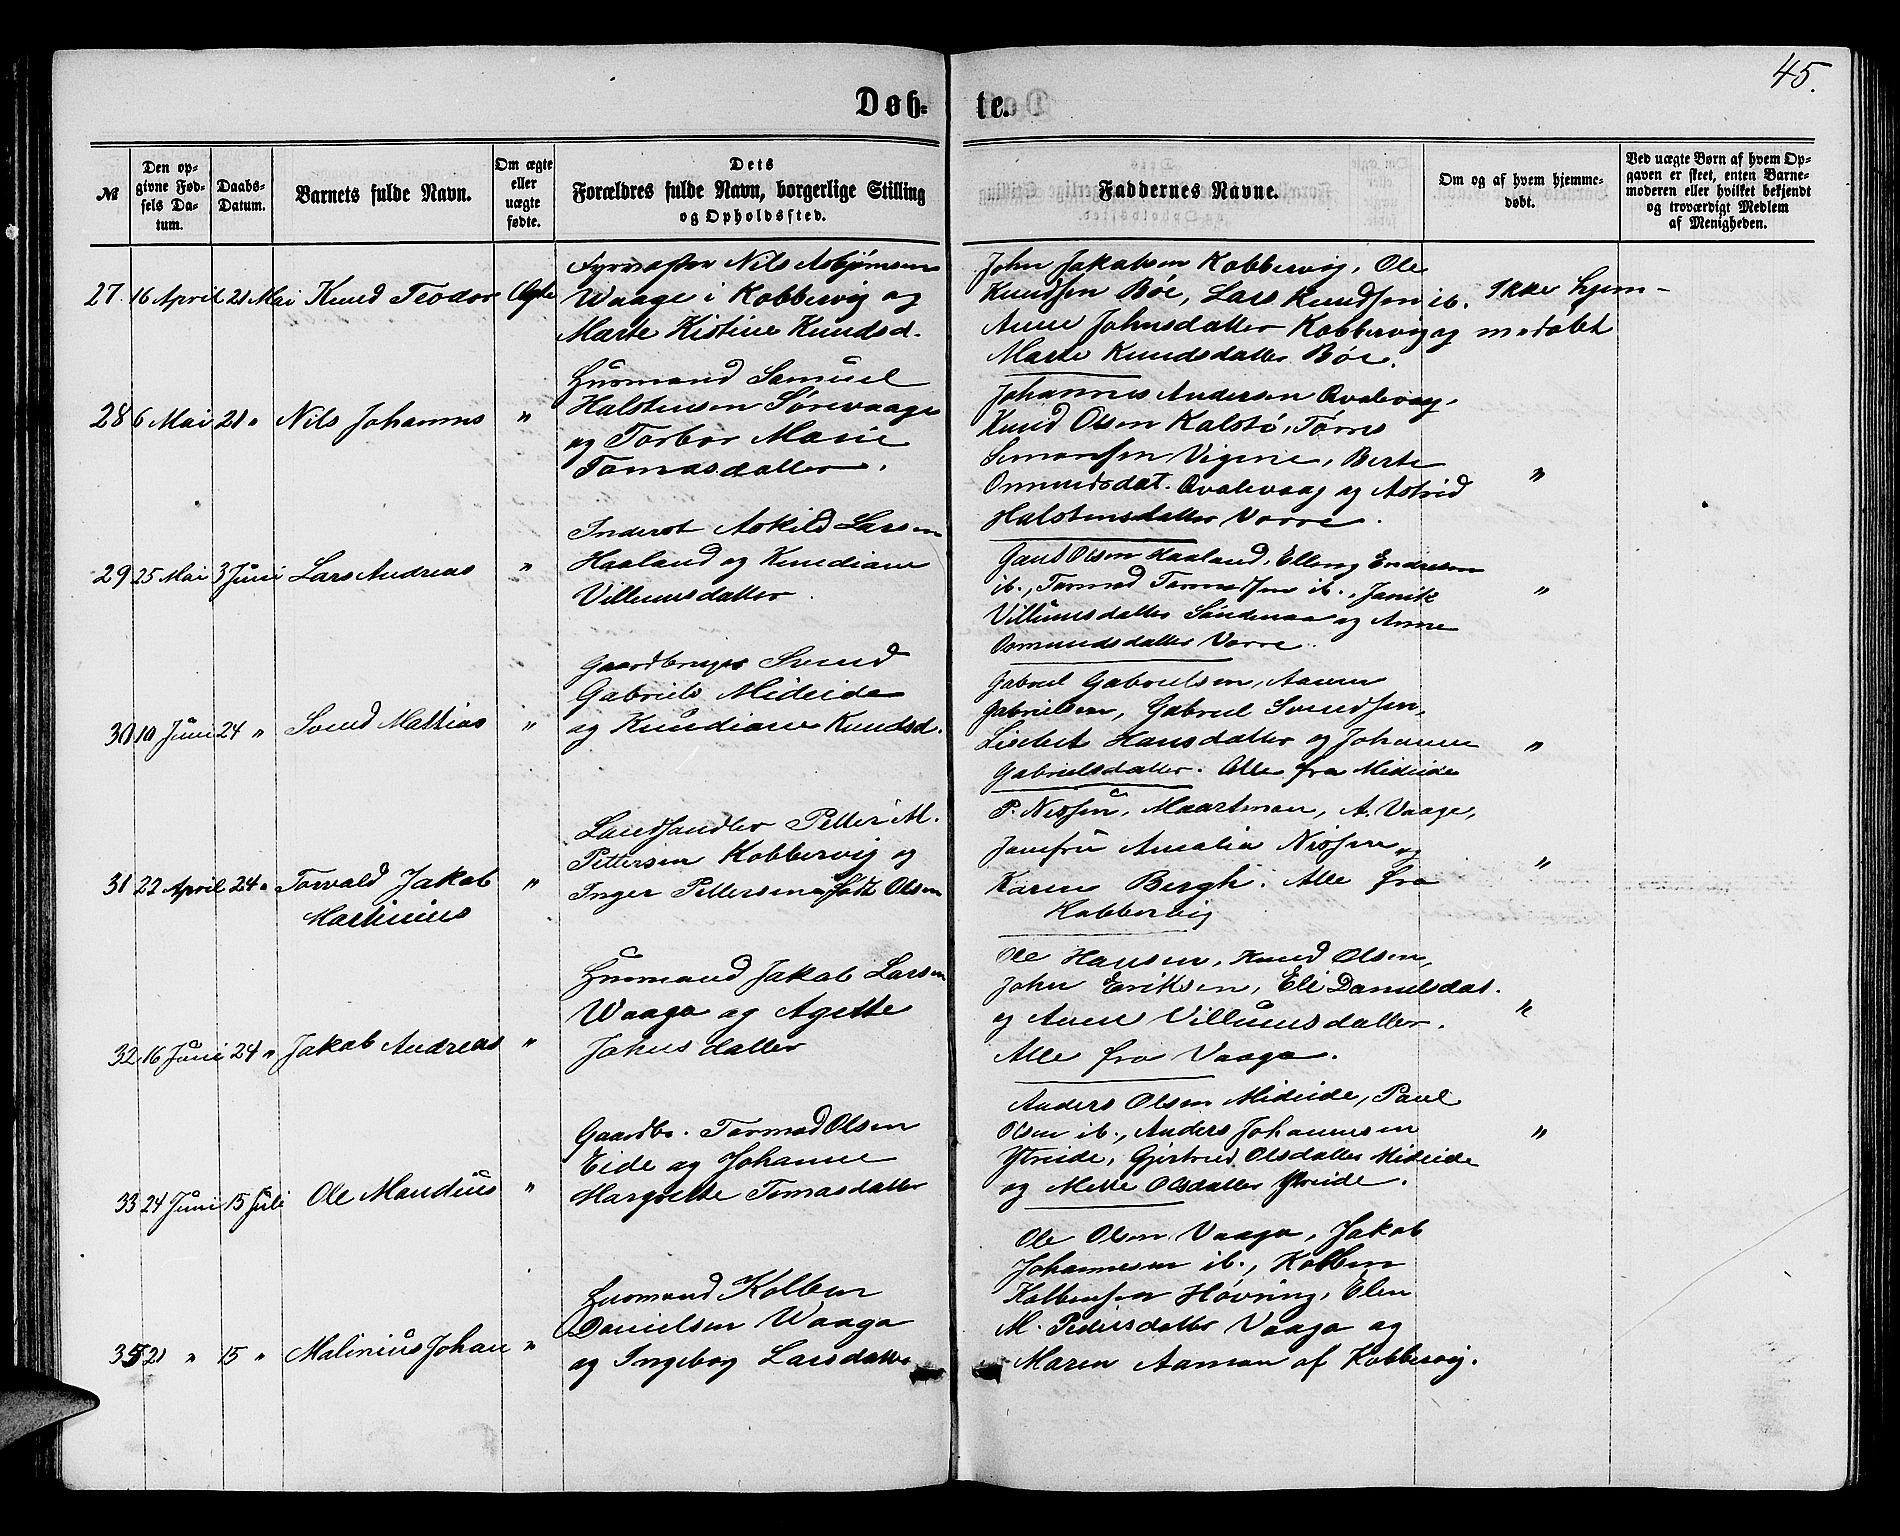 45.
Døb-
te.
№
Den op-
givne Fød-
sels Da-
tum.
Daabs-
Datum.
Barnets fulde Navn.
Om ægte
eller
uægte
fødte.
Dets
Forældres fulde Navn, borgerlige Stilling
og Opholdssted.
Faddernes Navne.
Om og af hvem hjemme-
døbt.
Ved uægte Børn af hvem Op-
gaven er skeet, enten Barne-
moderen eller hvilket bekjendt
og troværdigt Medlem
af Menigheden.
27. 16 April 21 Mai Knud Teodor Ægte
Nils Asbjørnsen
Waage i Kobbervig og
Marte Kistine Knudsd.
John Jakobsen Kobbervig, Ole
Knudsen Bøe, Lars Knudsen ib.
Anne Johnsdatter Kobbervig og
Marte Knudsdatter Bøe.
Ikke hjem-
medøbt
28 6 Mai 21 " Nils Johannes "
Husmand Samuel
Halstensen Sørevaage
og Torbor Marie
Tomasdatter.
Johannes Andersen Qvalevaag,
Knud Olsen Kalstø, Tørres
Simonsen Vigene, Berte
Ommundsdat. Qvalevaag og Astrid
Halstensdatter Vorre.
"
29 25 Mai 3 Juni Lars Andreas "
Inderst Askild Larsen
Haaland og Knudiane
Villumsdatter.
Gaut Olsen Haaland, Elling Endresen
ib., Tormod Tormodsen ib., Janik
Villumsdatter Søndenaa og Anne
Osmundsdatter Vorre.
"
30 10 Juni 24 " Svend Mattias "
Gaardbruger Svend
Gabriels. Mideide
og Knudiane Knudsd.
Gabriel Gabrielsen, Aanen
Gabrielsen, Gabriel Svendsen,
Lisebet Hansdatter og Johanne
Gabrielsdatter. Alle fra Mideide
"
31 22 April 24 " Torvald Jakob
Martinius
"
Landhandler Petter M.
Pettersen Kobbervig og
Inger Pettersen født Olsen
P. Nissen, Maartman, A. Vaage,
Jomfru Amalia Nissen og
Karen Bergh. Alle fra
Kobbervig
"
32 16 Juni 24 " Jakob Andreas "
Husmand Jakob Larsen
Waage og Agette
Johnsdatter
Ole Hansen, Knud Olsen,
John Eriksen, Eli Danielsdat.
og Anne Villumsdatter.
Alle fra Vaage.
"
33 24 Juni 15 Juli Ole Mandius "
Gaardbr. Tormod Olsen
Eide og Johanne
Margrette Tomasdatter
Anders Olsen Mideide, Paul
Olsen ib., Anders Johannesen
Ytreide, Gjertrud Olsdatter Mideide
og Mette Olsdatter Ytreide.
"
35 21 " 15 " Malinius Johan "
Husmand Kolben
Danielsen Waage
og Ingebor Larsdatter
Ole Olsen Vaage, Jakob
Johannesen ib., Kolben
Kolbensen Høvring, Elen
M. Pedersdatter Vaage og
Maren Aaman af Kobbervig.